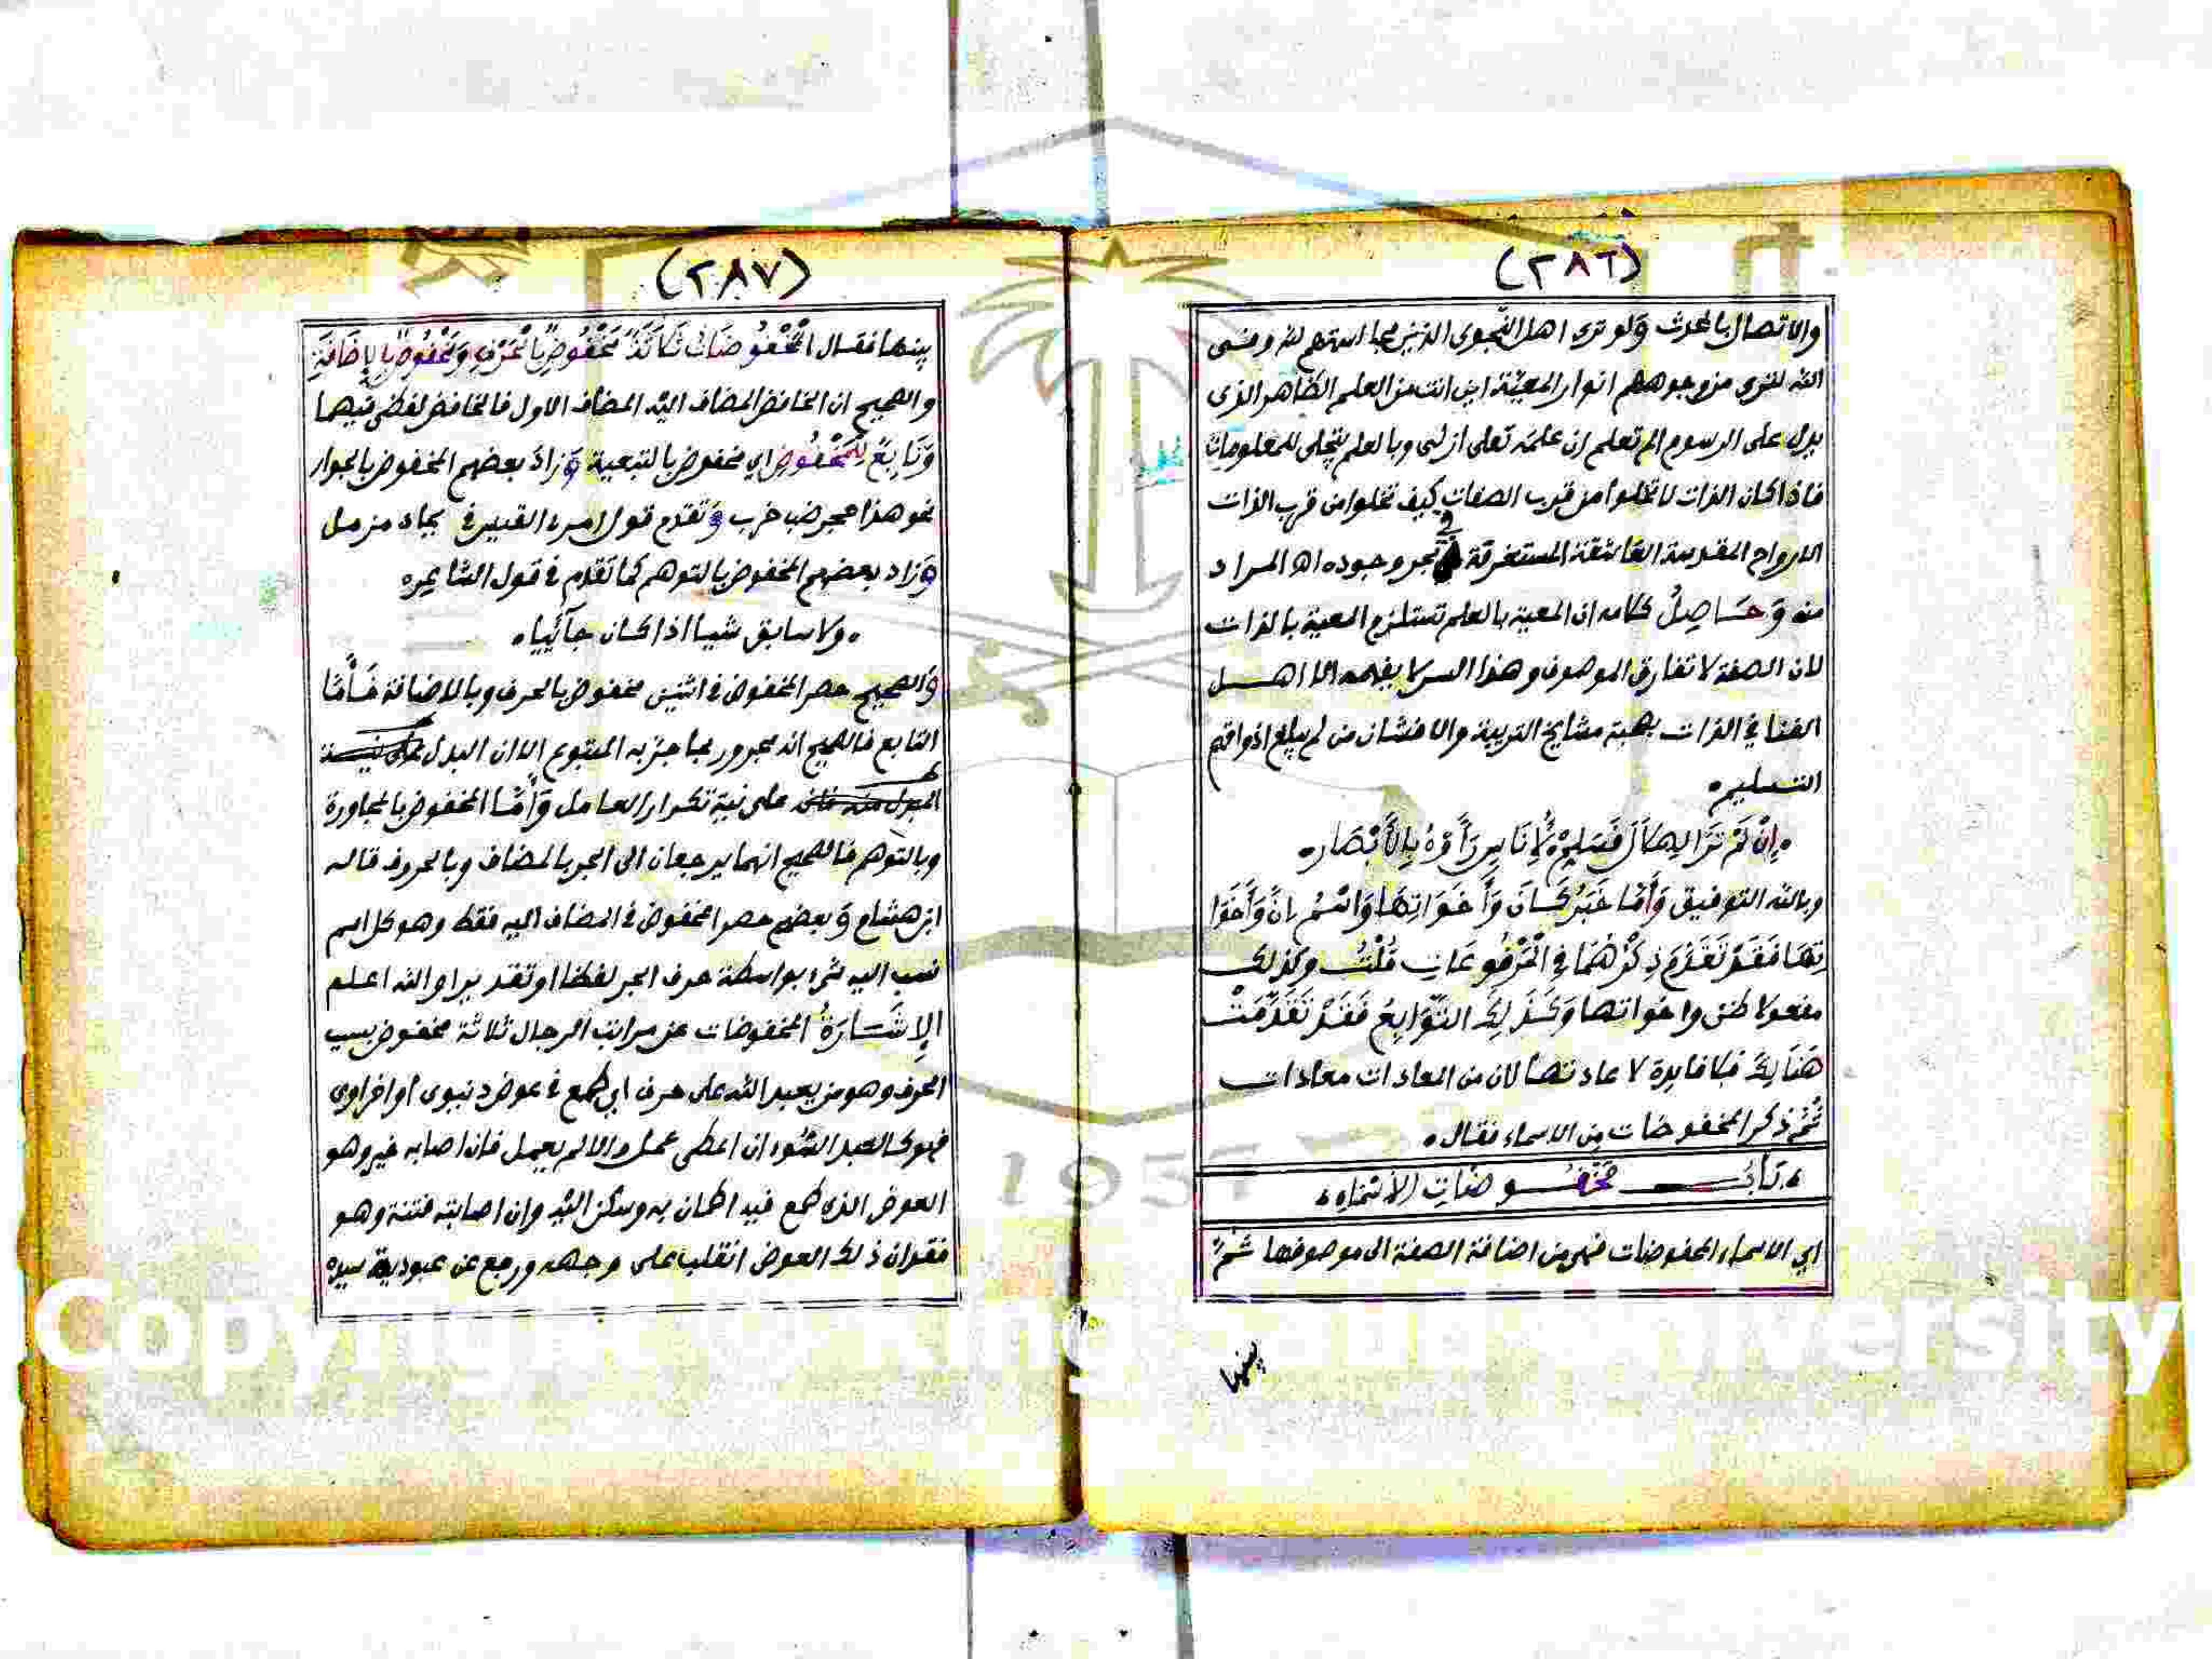 (٢٨٦)
والاتصال بالحدث ولو ترى اهل النجوى الذين مجالستهم لله ومنسى
الله لترى من وجوههم انوار المعيّة اين انت من العلم الظاهر الذى
يدل على الرسوم الم تعلم ان علمه تعلى ازلى وبالعلم يتجلى للمعلومات
فاذا كان الذات لا تخلوا من قرب الصفات كيف تخلوا من قرب الذات
الارواح المقدسة العاشقة المستغرقة في بحر وجوده اه المراد
منه وَحَاصِلُ كلامه ان المعية بالعلم تستلزم المعية بالذات
لان الصفة لا تفارق الموصوف وهذا السر لا يفهمه الا اهل
الفنا في الذات بهبة مشايخ التربية والا فشان من لم يبلغ اذواقهم
التسليم
اِنْ لَمْ تَرَ الهِلَالَ فَسَلِّمْ لِأُنَاسٍ رَأَوْهُ بِالأَبْصَارِ
وبالله التوفيق وَأَمَّا خَبَرُ كَانَ وَأَخَوَاتِهَا وَاسْمُ اِنَّ وَأَخَوَا
تِهَا فَقَدْ تَقَدَّمَ ذِكْرُهُمَا فِي الْمَرْفُوعَاتِ قُلْتُ وكذلك
مفعولا ظن واخواتها وَكَذَلِكَ التَّوَابِعُ فَقَدْ تَقَدَّمَتْ
هُنَالِكَ فلا فايدة لاعادتها لان من المعادات معادات
ثُمَّ ذكر المخفوضات من الاسماء فقال
بَابُ مَخْفُوضَاتِ الأَسْمَاءِ
اي الاسماء المخفوضات فهى من اضافة الصفة الى موصوفها ثمّ
بينها
(٢٨٧)
بينها فقال الْمَخْفُوضَاتُ ثَلَاثَةٌ مَخْفُوضٌ بِالْحَرْفِ وَمَخْفُوضٌ بِالإِضَافَةِ
والصحيح ان الخافض المضاف اليه المضاف الاول فالخافض لفظى فيهما
وَتَابِعٌ لِلْمَخْفُوضِ اي مخفوض بالتبعية وَزاد بعضهم المخفوض بالجوار
نحو هذا حجر ضب خرب وَتقدم قول امرء القيس في بجاد مزمل
وَزاد بعضهم المخفوض بالتوهم كما تقدم في قول الشاعر
ولا سابق شيا اذا كان جآئيا
وَالصحيح حصر المخفوض في اثنين مخفوض بالحرف وبالاضافة فَأَمَّا
التابع فالصحيح انه مجرور بما جرّ به المتبوع الا ان البدل على نية
المبدل منه على نية تكرار العامل وَأَمَّا المخفوض بالمجاورة
وبالتوهم فالصحيح انهما يرجعان الى الجر بالمضاف وبالحروف قاله
ابن هشام وَبعضهم حصر المخفوض في المضاف اليه فقط وهو كل اسم
نسب اليه شئ بواسطة حرف الجر لفظا او تقديرا والله اعلم
الإِشَارَةُ المخفوضات عن مراتب الرجال ثلاثة مخفوض بسبب
الحرف وهو من يعبد الله على حرف اي طمع في عوض دنيوى أو اخراوى
فهو كالعبد السّوء ان اعطى عمل والا لم يعمل فان اصابه خير وهو
العوض الذى طمع فيه اطمان به وسكن اليه وان اصابته فتنة وهو
فقدان ذلك العوض انقلب على وجهه ورجع عن عبودية سيده
Copyright © King Saud University
1957